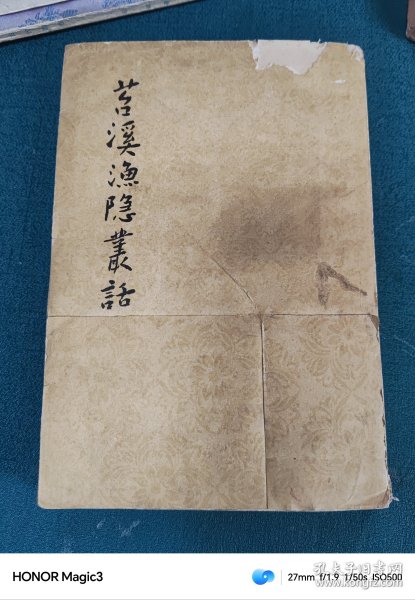 苕溪漁隐叢話
HONOR Magic3
27mm f/1.9 1/50s ISO500
孔夫子旧书网